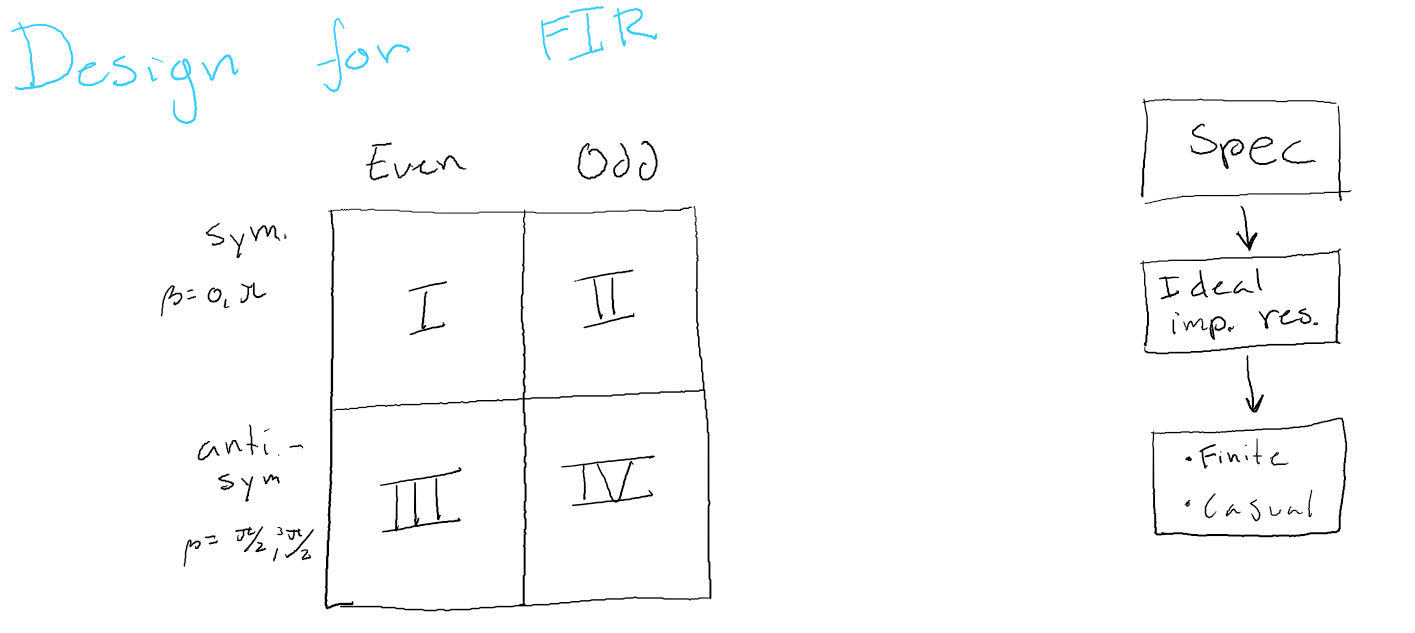 Design for FIR
Even Odd
sym.
β=0, π
I II
anti-
sym
β= π/2, 3π/2
III IV
Spec
Ideal
imp. res.
• Finite
• Casual